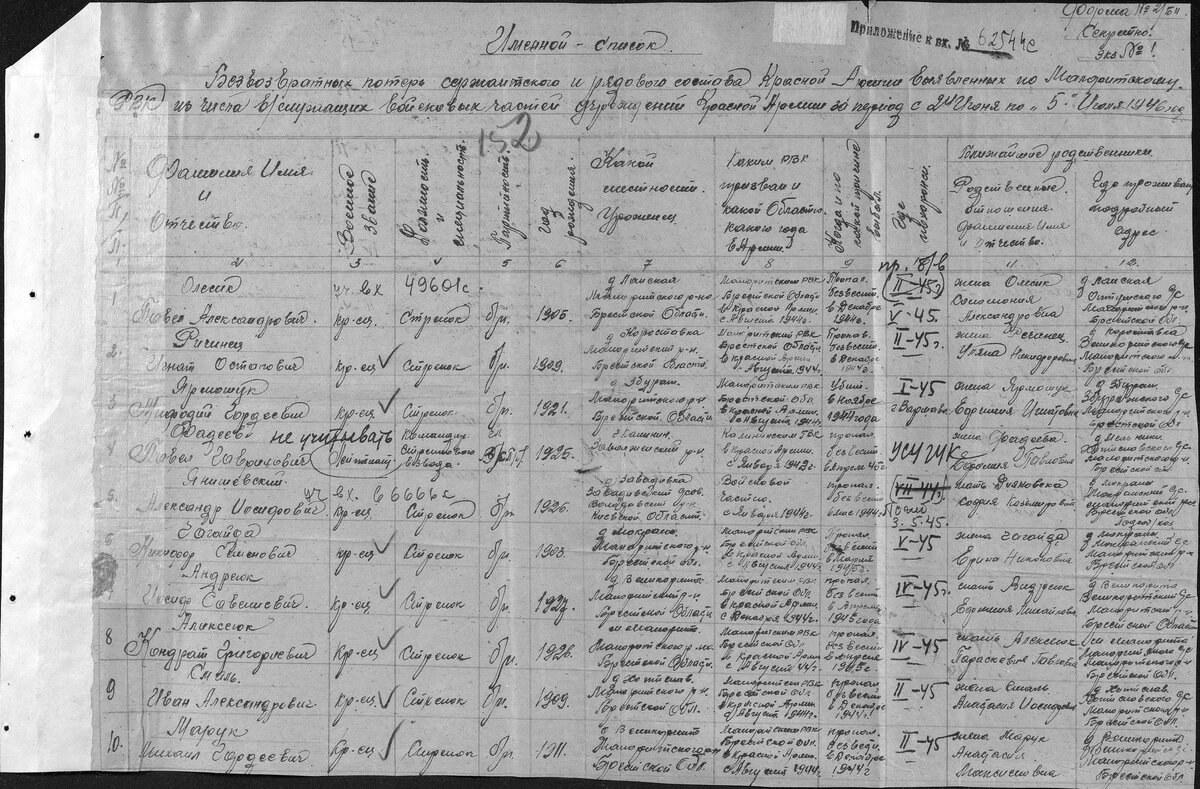 Форма № 2/БП
Секретно!
Экз № 1
Приложение к вх. № 62544с
Именной - список
Безвозвратных потерь сержантского и рядового состава Красной Армии выявленных по Малоритскому
РВК из числа в/служащих войсковых частей учреждений Красной Армии за период с 24 Июня по „5" Июля 1946 год
152
№ № п/п.
Фамилия Имя и Отчество.
Военное звание
Должность и специальность.
Партийность.
год рождения.
Какой местности Уроженец
Каким РВК призван и какой Области какого года в Армии.
Когда и по какой причине выбыл.
Где похоронен.
Ближайшие родственники.
Родственные отношения фамилия Имя и отчество.
Где проживают подробный адрес.
2 3 4 5 6 7 8 9 11 12
пр. 18/в
1
Олесик
Павел Александрович.
уч. вх 49601с.
кр-ец. Стрелок б/п. 1905.
Малоритского р-на
Брестской Области.
Малоритским РВК
Брестской Области
в Красной Армии
с Августа 1944г.
Пропал
без вести
в Декабре
1944г.
II-45г
V-45.
жена Олесик
Александровна
Малоритского р-на
Брестской обл.
2.
Игнат Остапович
кр-ец Стрелок б/п. 1909.
Малоритский р-н
Брестской Области.
Малоритский РВК
Брестской Области
в Красной Армии
с Августа 1944г.
Пропал
без вести
в Декабре
1944г.
II-45г.
жена
Уляна Никифоровна
Малоритского р-н
Брестской обл.
3
Ярмошук
Мифодий Гордеевич
кр-ец Стрелок б/п. 1921.
д Збураж.
Малоритского р-на
Брестской Области
Малоритским РВК
Брестской Обл
в Красной Армии.
с Августа 1944г
Убит.
в Ноябре
1944 года
I-45
г Варшава
жена Ярмошук
д Збураж.
Збуражского с/с
Малоритского р-н
Брестской обл
4
Фадеев
Павел Гаврилович
не учитывать
Лейтенант
Командир
Стрелкового
взвода.
1925.
Калининским РВК
в Красной Армии
с Января 1942г.
пропал
без вести
в Апреле 45г
УСУ ГУК
жена Фадеева.
Евдокия Павловна
Малоритского р-н
Брестской обл
5.
Янишевский.
Александр Иосифович
уч. вх. 66666с
кр-ец. Стрелок б/п. 1926.
д Завадовка
Киевской Области.
Войсковой
Частью.
с Января 1944г.
пропал.
без вести
в Мае 1944г.
VII-44г.
3.5.45.
мать Яновска
София Казимировна
д Мокраны
Мокранский с/с
Малоритского р-н
Брестской обл.
6
Чагайда
Никифор Семенович
кр-ец Стрелок б/п. 1903
д Мокраны.
Малоритского р-н
Брестской обл.
Малоритским РВК
Брестской Обл.
в Красной Армии
с Августа 1944г
Пропал
без вести
в Марте
1945г.
V-45
жена Чагайда
д Мокраны.
Мокранский с/с
Малоритского р-н
Брестской обл.
7
Андреюк
Иосиф Савельевич.
кр-ец Стрелок б/п. 1927.
д Велико​рита.
Малоритский р-н
Брестской Области
Малоритским РВК
Брестской Обл
в Красной Армии
с Декабря 1944г.
пропал.
без вести
в Апреле
1945 года
IV-45г.
мать Андреюк
Евдокия Михайловна
д Великорита
Великоритский с/с
Малоритский р-н
Брестской Области
8
Алексеюк
Кондрат Григорьевич
кр-ец Стрелок б/п. 1926.
м Малорита.
Малоритского р-на
Брестской Области.
Малоритским РВК
Брестской Обл
в Красной Армии
с Августа 44г.
пропал
без вести
1945г.
IV-45
мать Алексеюк
Парасковья Павловна
м Малорита
Малоритского р-н
Брестской обл.
9
Иван Александрович
кр-ец Стрелок б/п. 1909.
д Хотислав.
Малоритского р-н.
Брестской Обл.
Малоритским РВК
Брестской Обл.
в Красной Армии.
с Август 1944г.
пропал
без вести
в Декабре
1944г.
II-45
жена
Анастасия Иосифовна
д Хотислав.
Хотиславского с/с
Малоритского р-н
Брестской Обл.
10.
Марук
Михаил Гордеевич.
кр-ец Стрелок б/п. 1911.
д Великорита
Малоритского р-н
Брестской Обл.
Малоритским РВК
Брестской Обл.
в Красной Армии.
с Августа 1944г.
пропал
без вести
в Декабре
1944г
II-45
жена Марук
Анастасия
Максимовна
д Великорита
Великоритский с/с
Малоритского р-н
Брестской обл